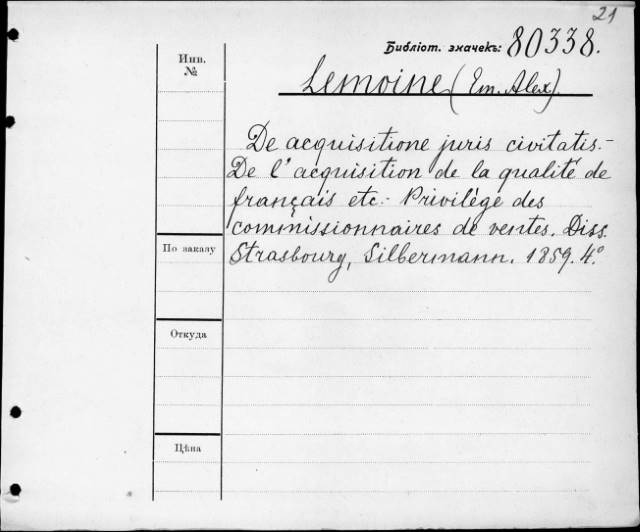 21
Библіот. значекъ: 80338.
Инв.
№
Lemoine (Em. Alex).
De acquisitione juris civitatis.-
De l'acquisition de la qualité de
français etc.- Privilège des
commissionnaires de ventes. Diss.
По заказу
Strasbourg, Silbermann. 1859. 4°.
Откуда
Цѣна